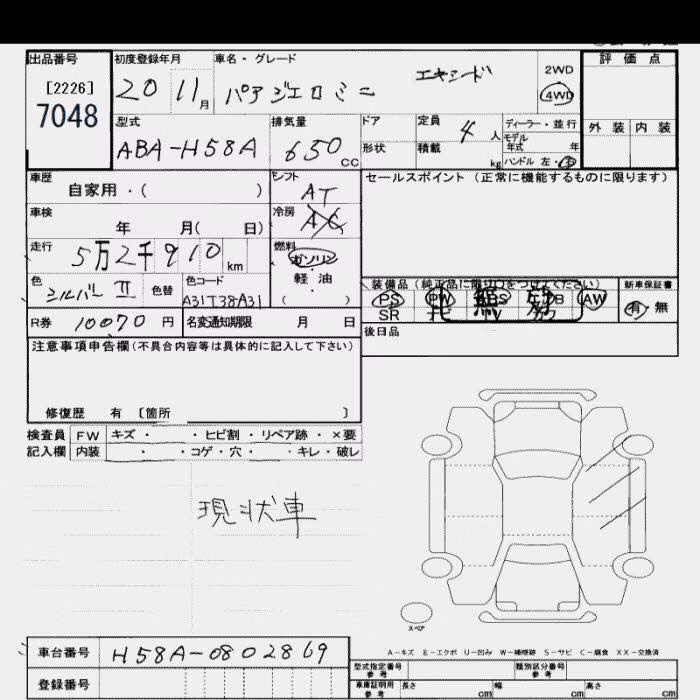 出品番号
[2226]
7048
初度登録年月
20 11月
車名・グレード
パアジェロミニ
エキシード
2WD
4WD
評価点
外装 内装
型式
ABA-H58A
排気量
650cc
ドア
形状
定員
4人
積載
kg
ディーラー・並行
モデル年式 年
ハンドル 左・
車歴
自家用・( )
シフト
AT
車検
年 月( 日)
冷房
AC
走行
5万2千910km
燃料
ガソリン
軽油
( )
色
シルバーII
色替
色コード
A31T38-A31
R券 10070円
名変通知期限 月 日
セールスポイント(正常に機能するものに限ります)
PS PW AW
SR TV
新車保証書
有・無
後日品
注意事項申告欄(不具合内容等は具体的に記入して下さい)
修復歴 有 〔箇所 〕
検査員記入欄
FW キズ・ ・ヒビ割・リペア跡・×要
内装 ・ ・コゲ・穴・ ・キレ・破レ
現状車
スペア
A-キズ E-エクボ U-凹み W-補修跡 S-サビ C-腐食 XX-交換済
車台番号
H58A-0802869
登録番号
型式指定番号
参考
類別区分番号
参考
車庫証明用
参考
長さ cm
幅 cm
高さ cm